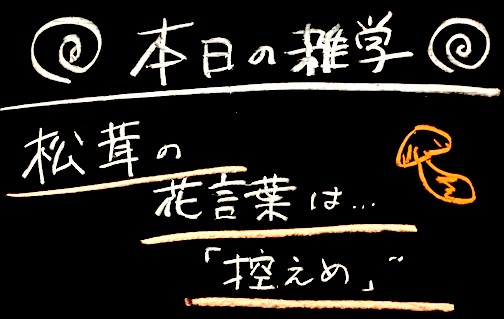 本日の雑学
松茸の
花言葉は…
「控えめ」